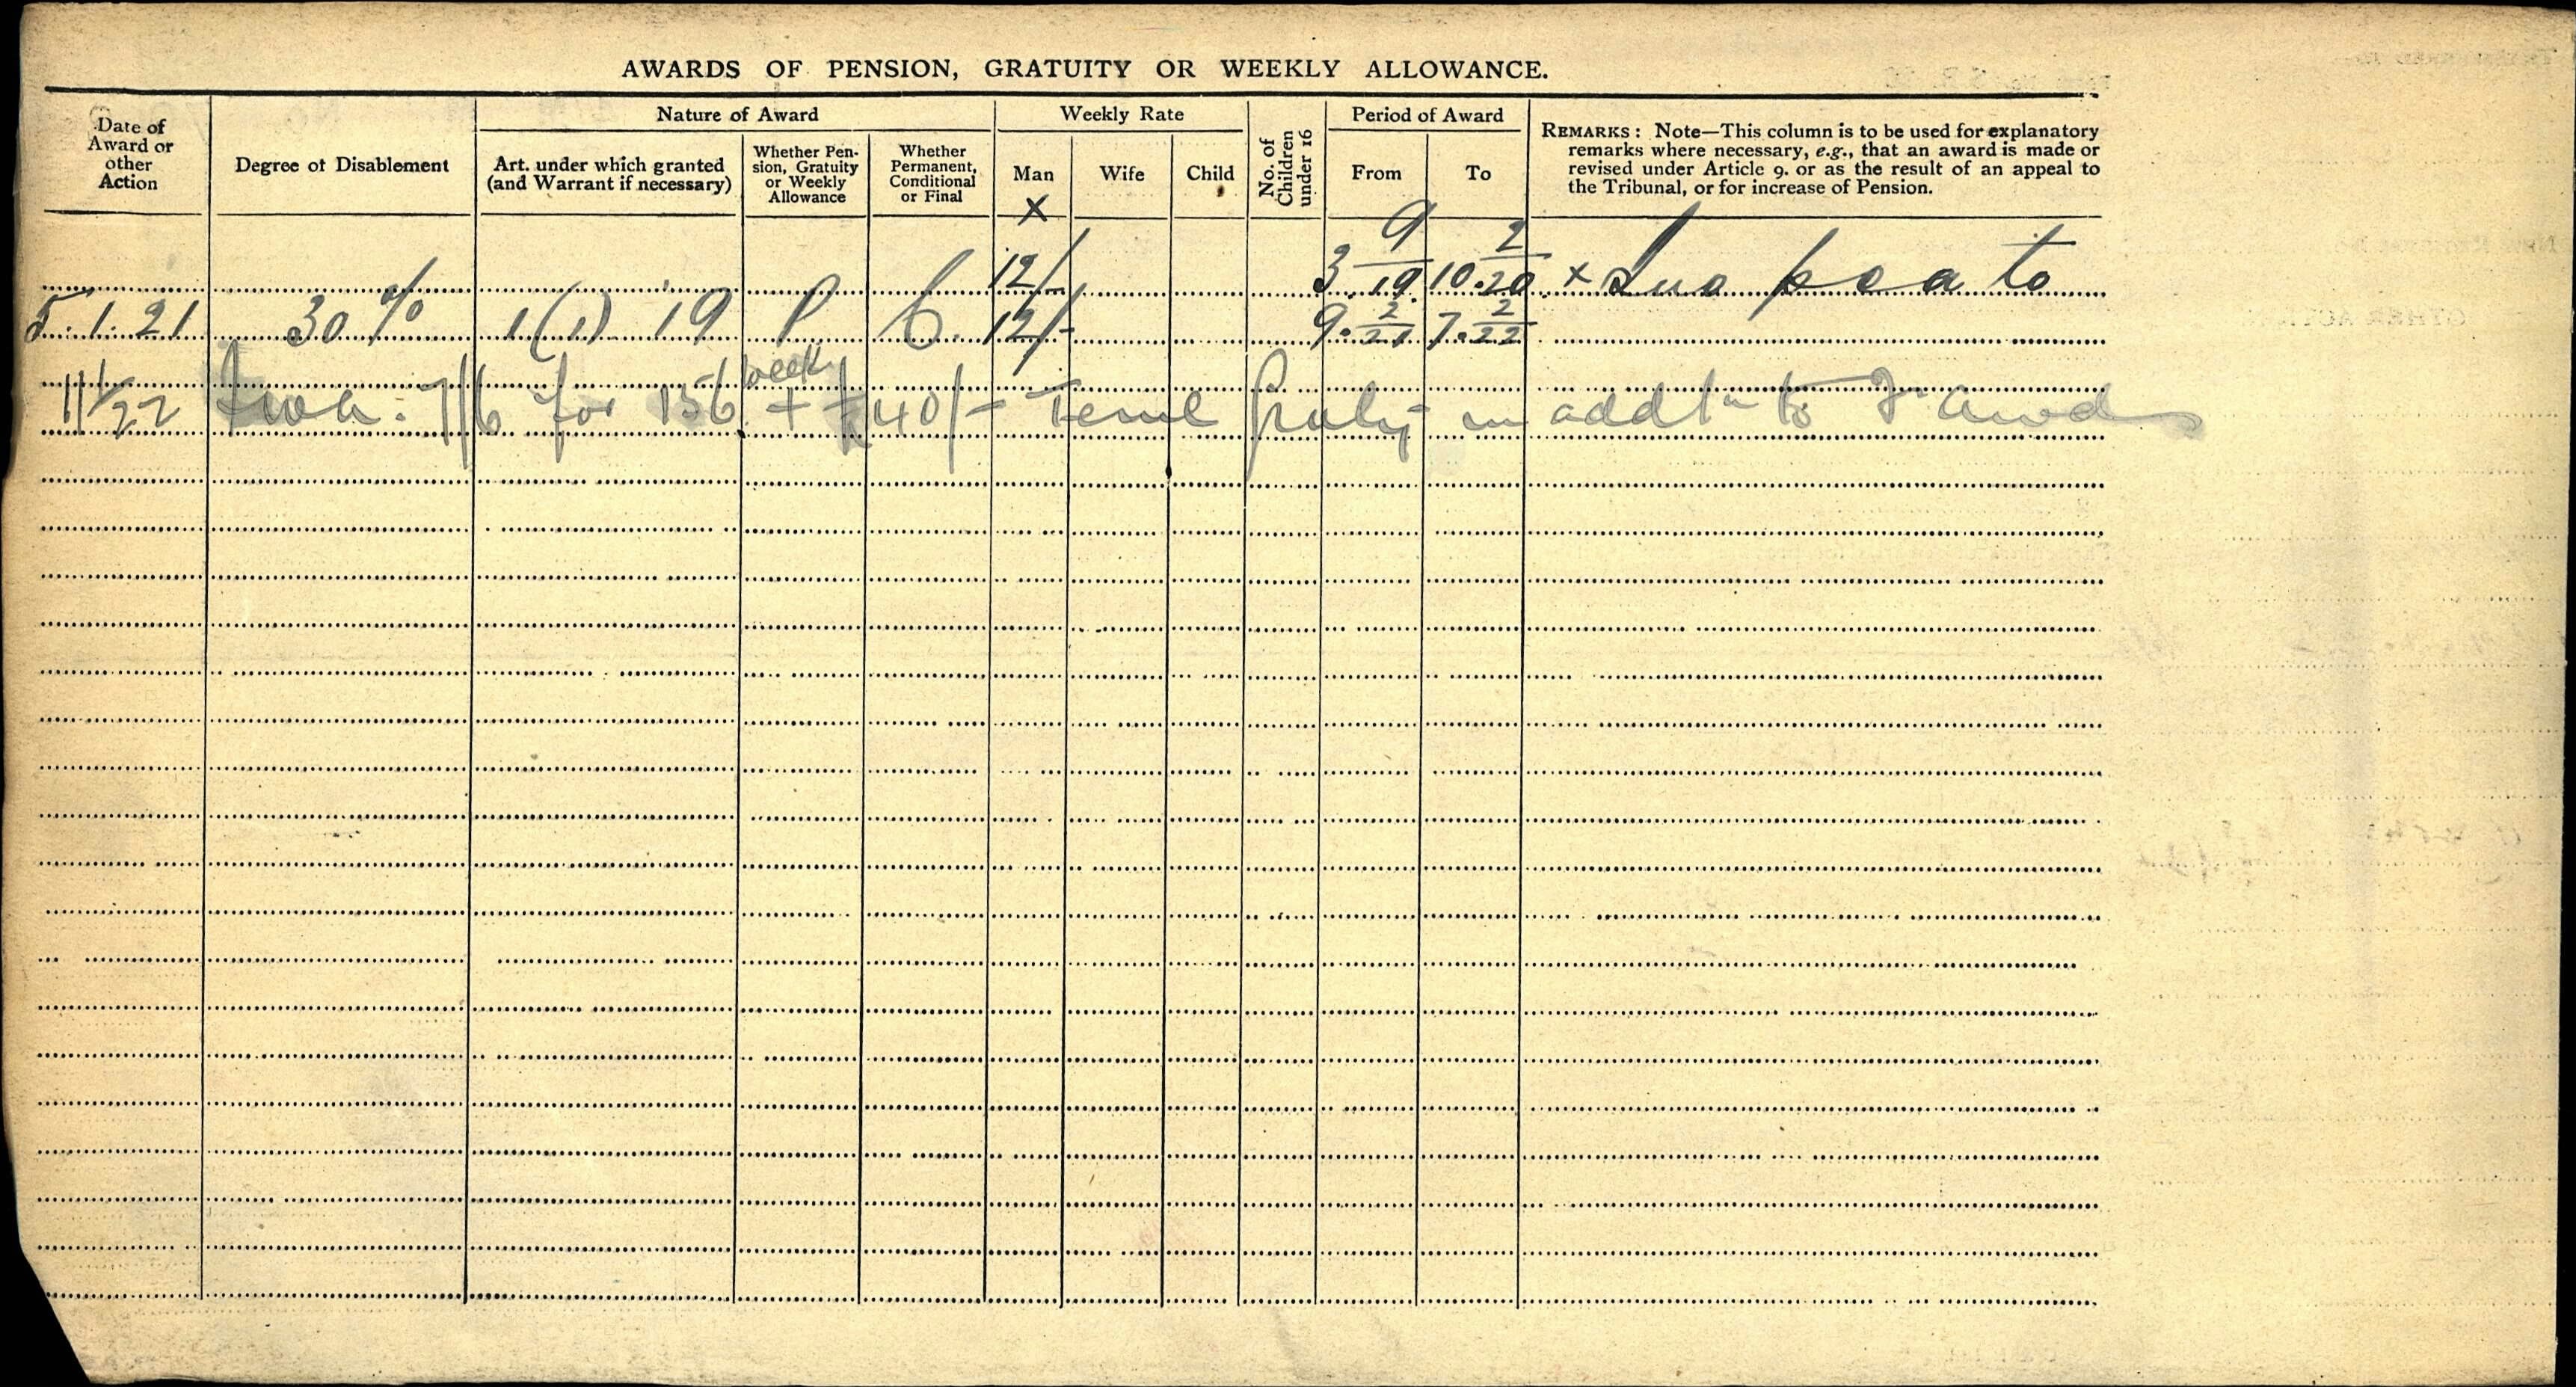 AWARDS OF PENSION, GRATUITY OR WEEKLY ALLOWANCE.
Date of Award or other Action
Degree of Disablement
Nature of Award
Art. under which granted (and Warrant if necessary)
Whether Pension, Gratuity or Weekly Allowance
Whether Permanent, Conditional or Final
Weekly Rate
Man
X
Wife
Child
No. of Children under 16
Period of Award
From
To
REMARKS: Note—This column is to be used for explanatory
remarks where necessary, e.g., that an award is made or
revised under Article 9. or as the result of an appeal to
the Tribunal, or for increase of Pension.
12/- 3 9/19 10 2/20 x
5.1.21 30% 1(1) 19 P C 12/- 9. 2/21 7. 2/22
week
11/22 7/6 for 156 + 40/- in addtn to awd